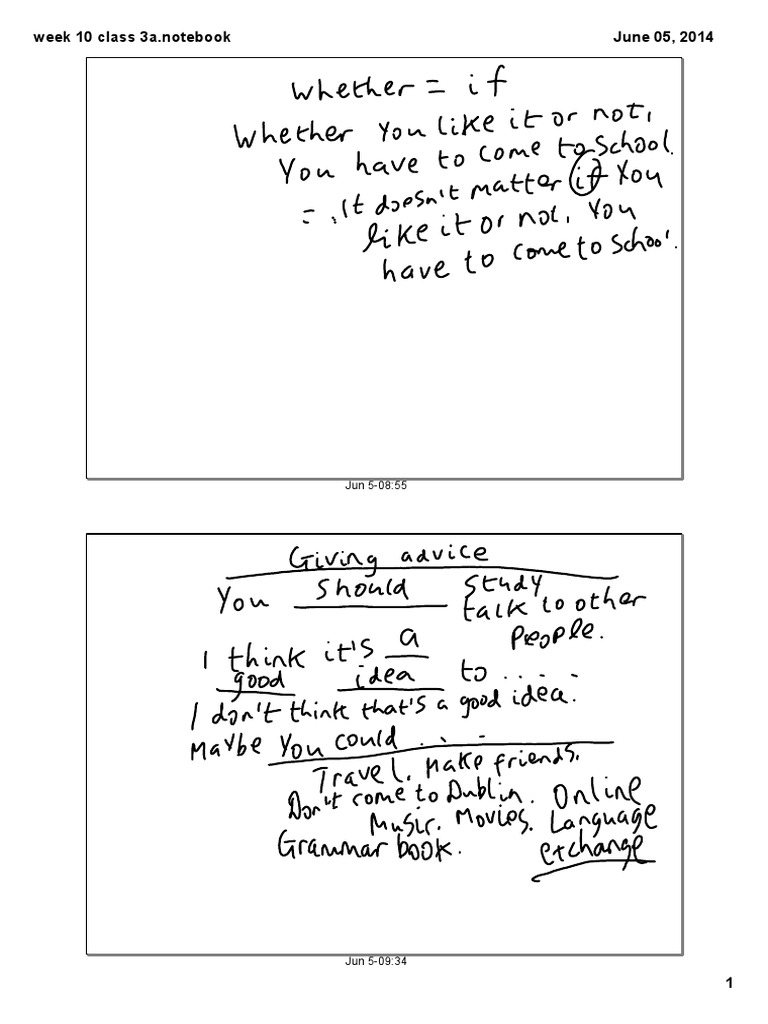 week 10 class 3a.notebook
June 05, 2014
Whether = if
Whether you like it or not,
You have to come to school.
= .It doesn't matter if you
like it or not, you
have to come to school.
Jun 5-08:55
Giving advice
You should study
talk to other
people.
I think it's a
good idea to .....
I don't think that's a good idea.
Maybe you could ...
Travel. Make friends.
Don't come to Dublin. Online
Music. Movies. Language
Grammar book. exchange
Jun 5-09:34
1